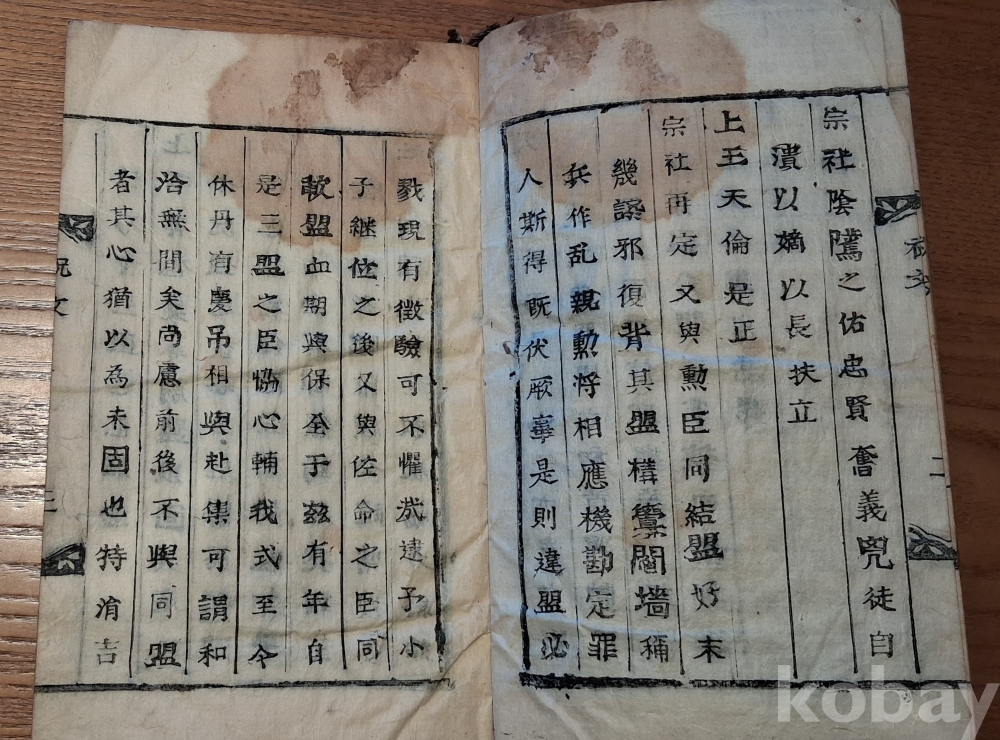 宗社陰騭之佑忠賢奮義兇徒自
潰以嫡以長扶立
上王天倫是正
宗社再定又與勲臣同結盟好未
幾謀邪復背其盟構釁鬩墻稱
兵作乱親勲將相應機勘定罪
人斯得旣伏厥辜是則違盟必
戮現有徵驗可不懼㢤逮予小
子継位之後又與佐命之臣同
歃盟血期與保全于玆有年自
是三盟之臣恊心輔我式至今
休丹有慶吊相與赴集可謂和
洽無間矣尚慮前後不與同盟
者其心猶以為未固也特涓吉
二
祝文
三
kobay